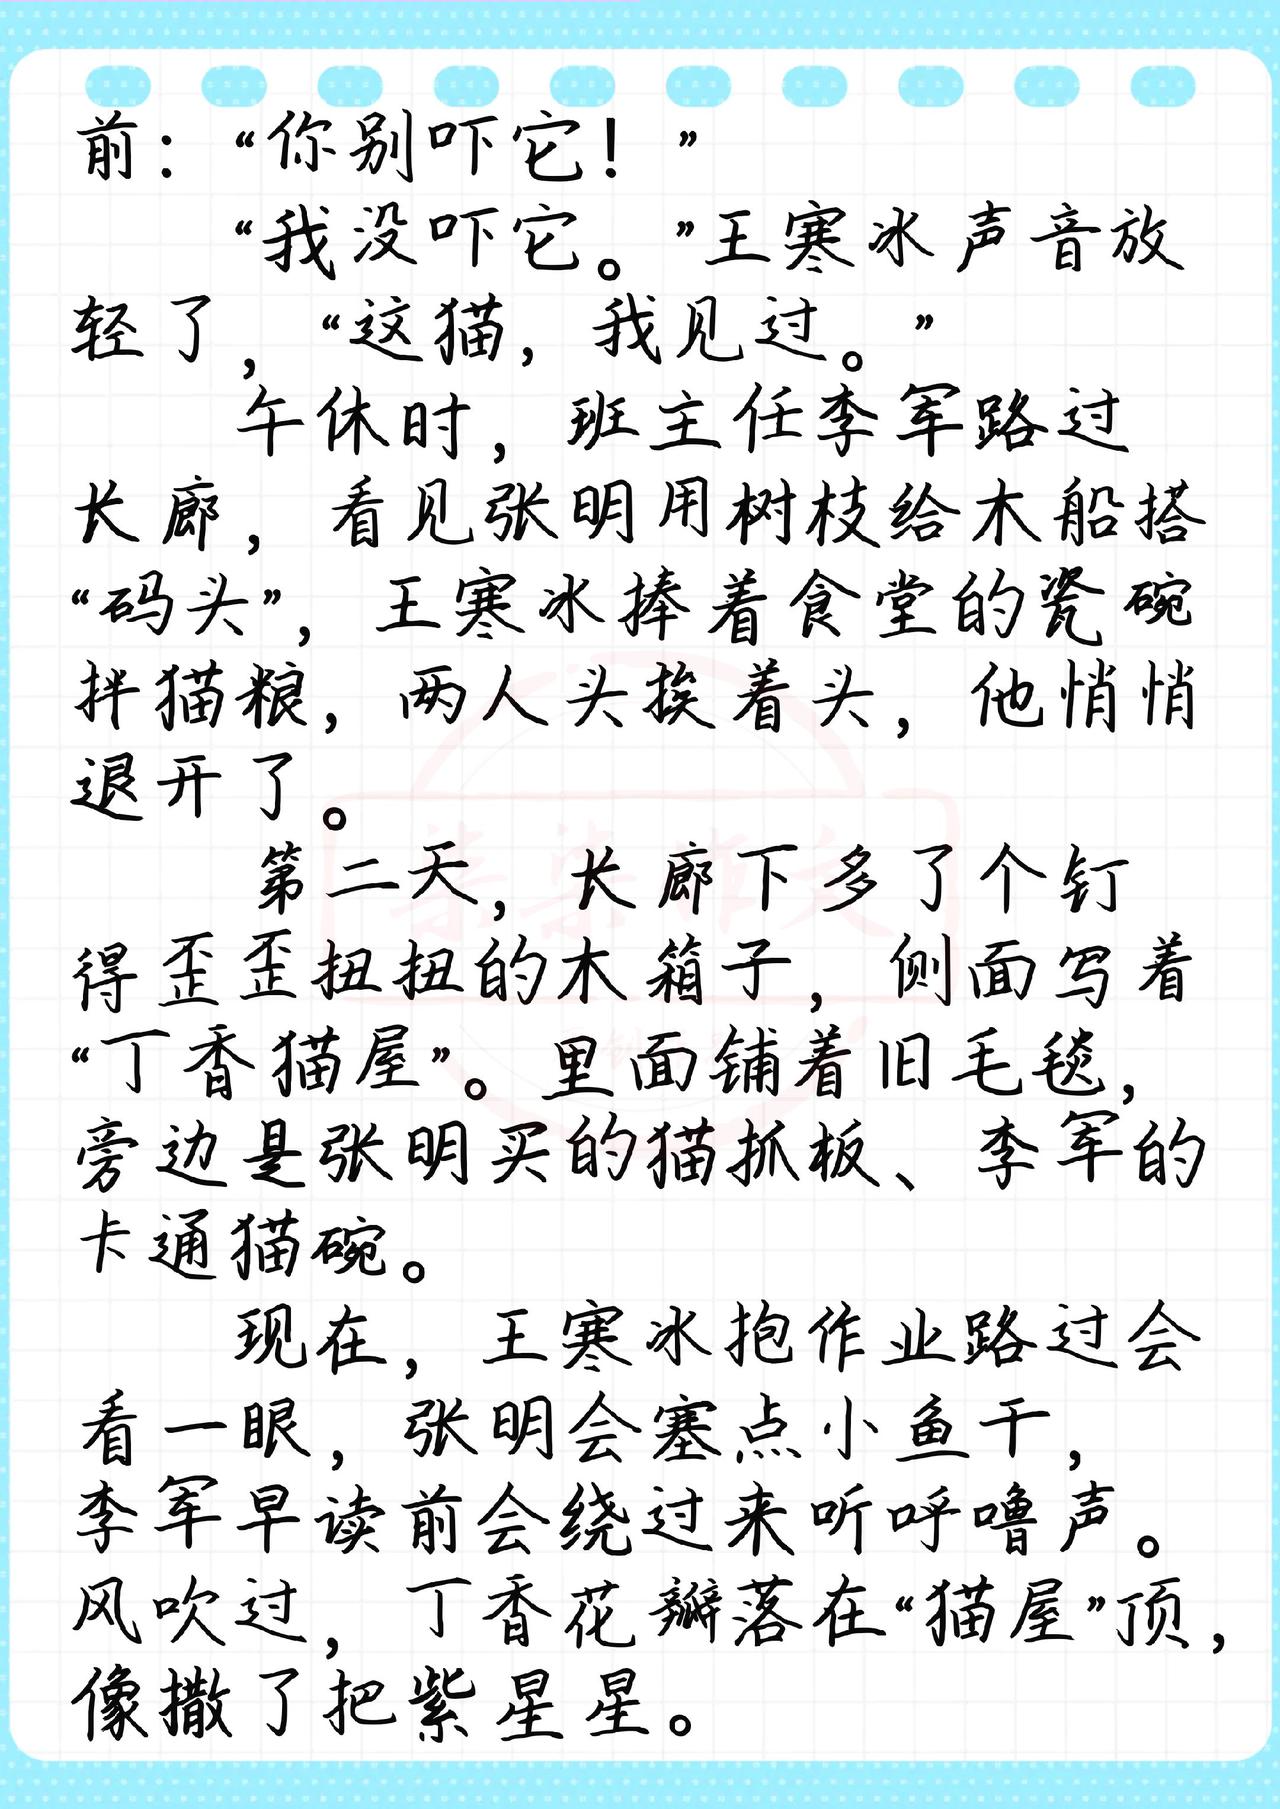 前：“你别吓它！”
“我没吓它。”王寒冰声音放
轻了，“这猫，我见过。”
午休时，班主任李军路过
长廊，看见张明用树枝给木船搭
“码头”，王寒冰捧着食堂的瓷碗
拌猫粮，两人头挨着头，他悄悄
退开了。
第二天，长廊下多了个钉
得歪歪扭扭的木箱子，侧面写着
“丁香猫屋”。里面铺着旧毛毯，
旁边是张明买的猫抓板、李军的
卡通猫碗。
现在，王寒冰抱作业路过会
看一眼，张明会塞点小鱼干，
李军早读前会绕过来听呼噜声。
风吹过，丁香花瓣落在“猫屋”顶，
像撒了把紫星星。